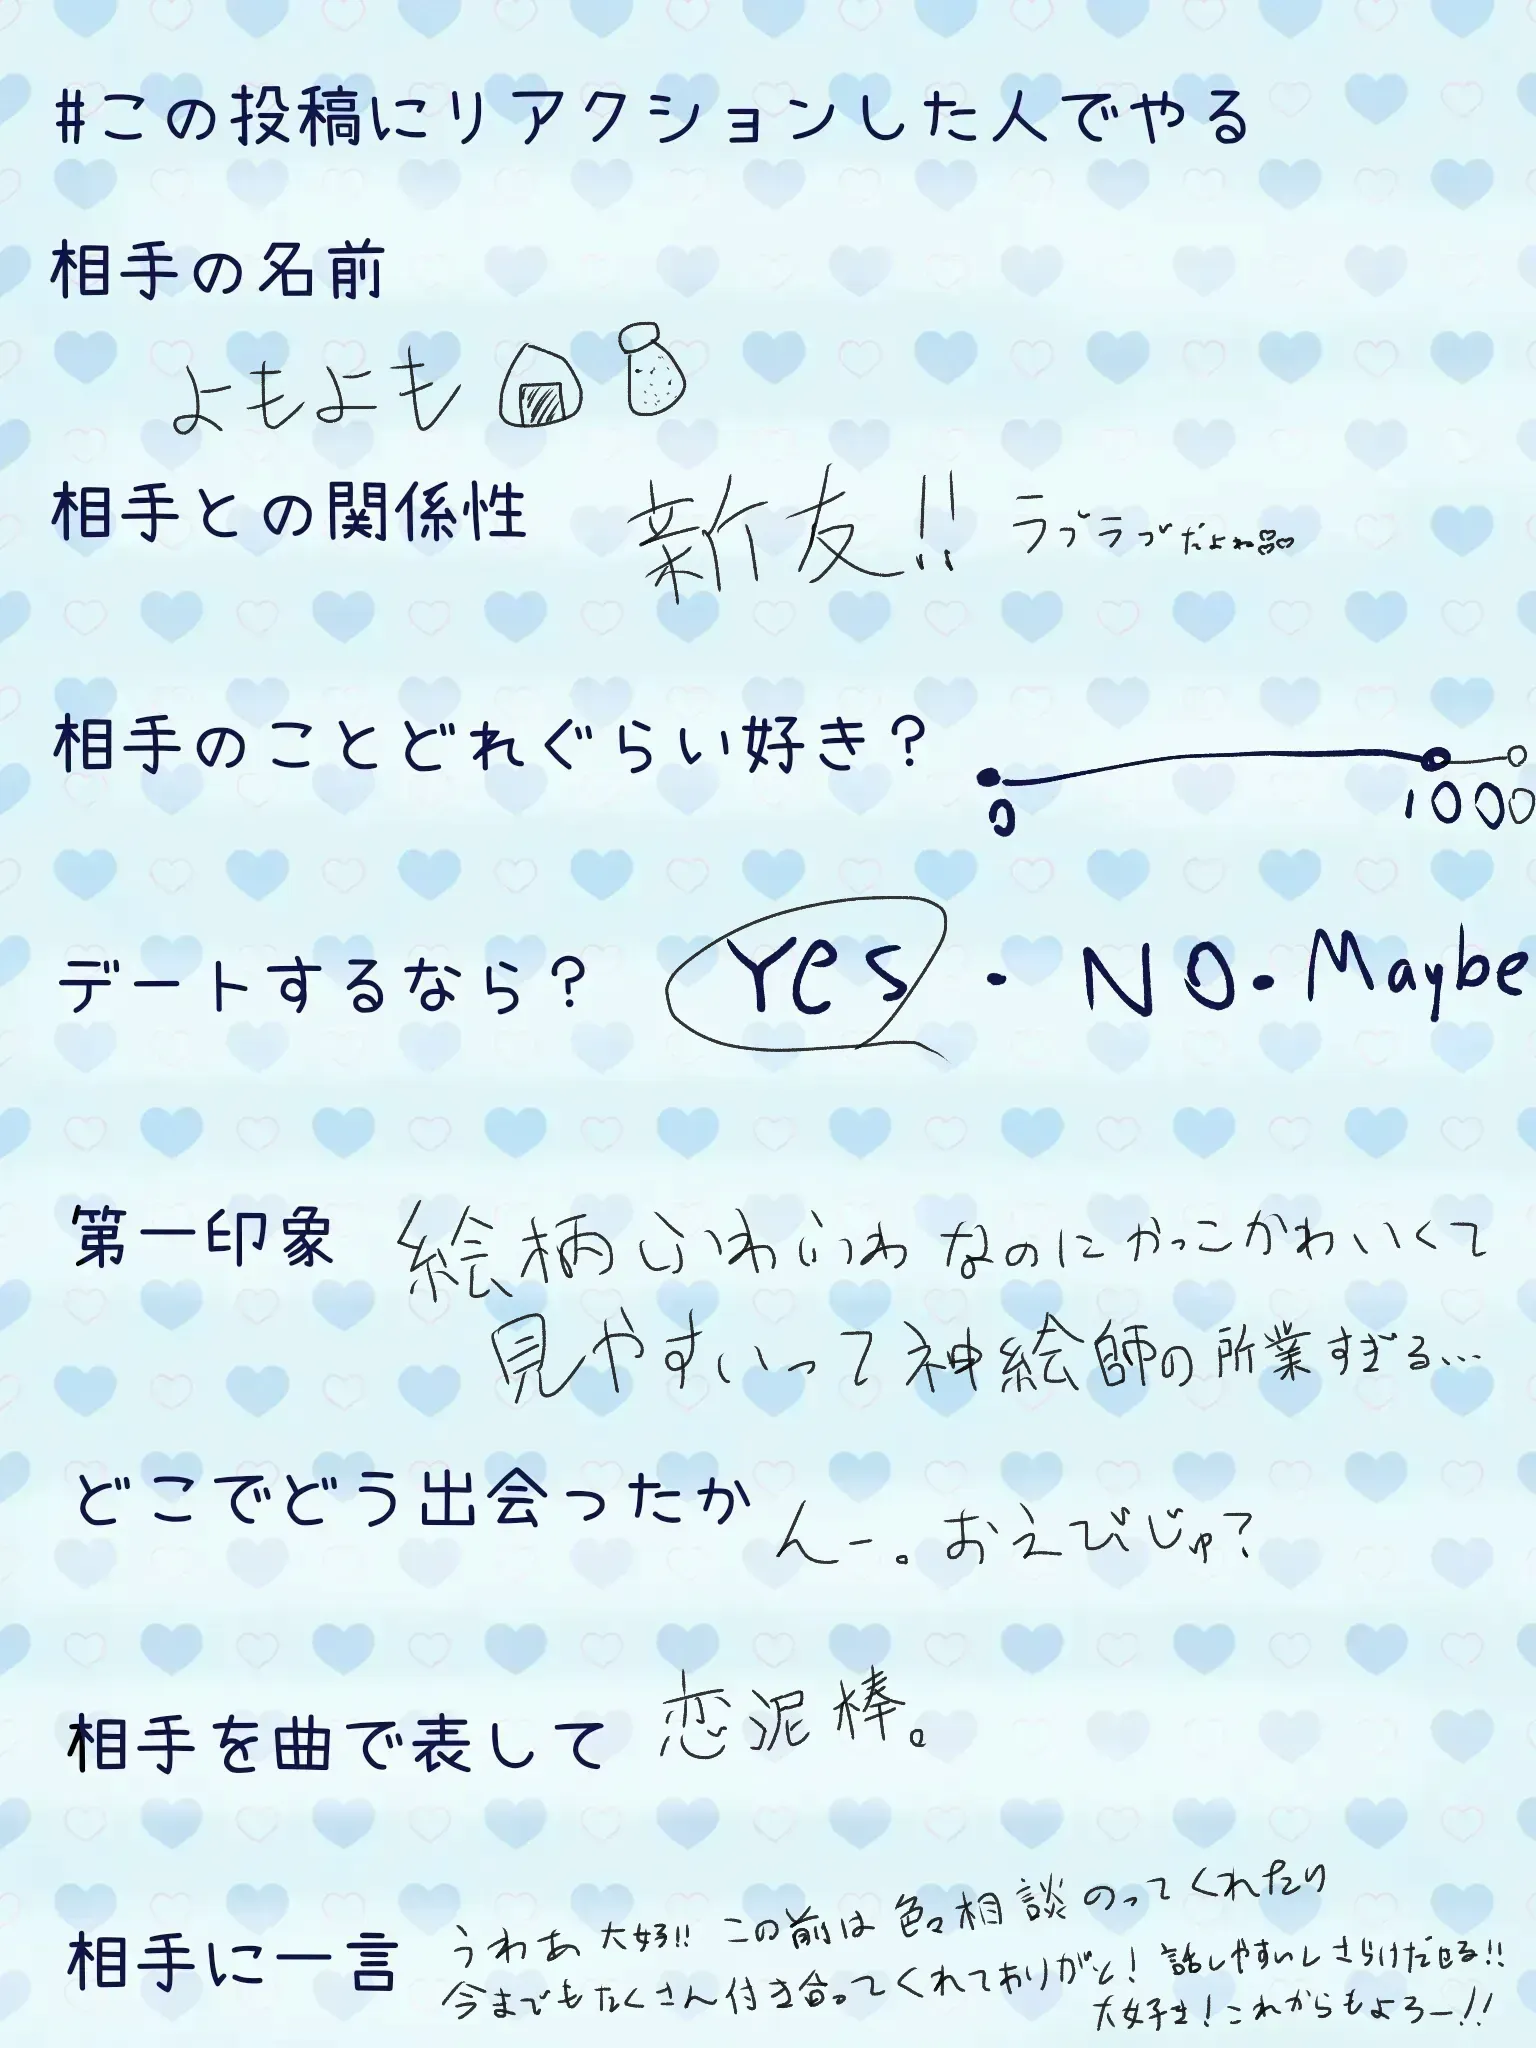 #この投稿にリアクションした人でやる
相手の名前
よもよも
相手との関係性 新友!! ラブラブだよね
相手のことどれぐらい好き？
0 10000
デートするなら？ Yes・NO・Maybe
第一印象 絵柄ふわふわなのにかっこかわいくて
見やすいって神絵師の所業すぎる…
どこでどう出会ったか んー。おえびじゅ?
相手を曲で表して 恋泥棒。
相手に一言 うわあ大好!! この前は色々相談のってくれたり
今までもたくさん付き合ってくれてありがと! 話しやすいしさらけだせる!!
大好き!これからもよろー!!